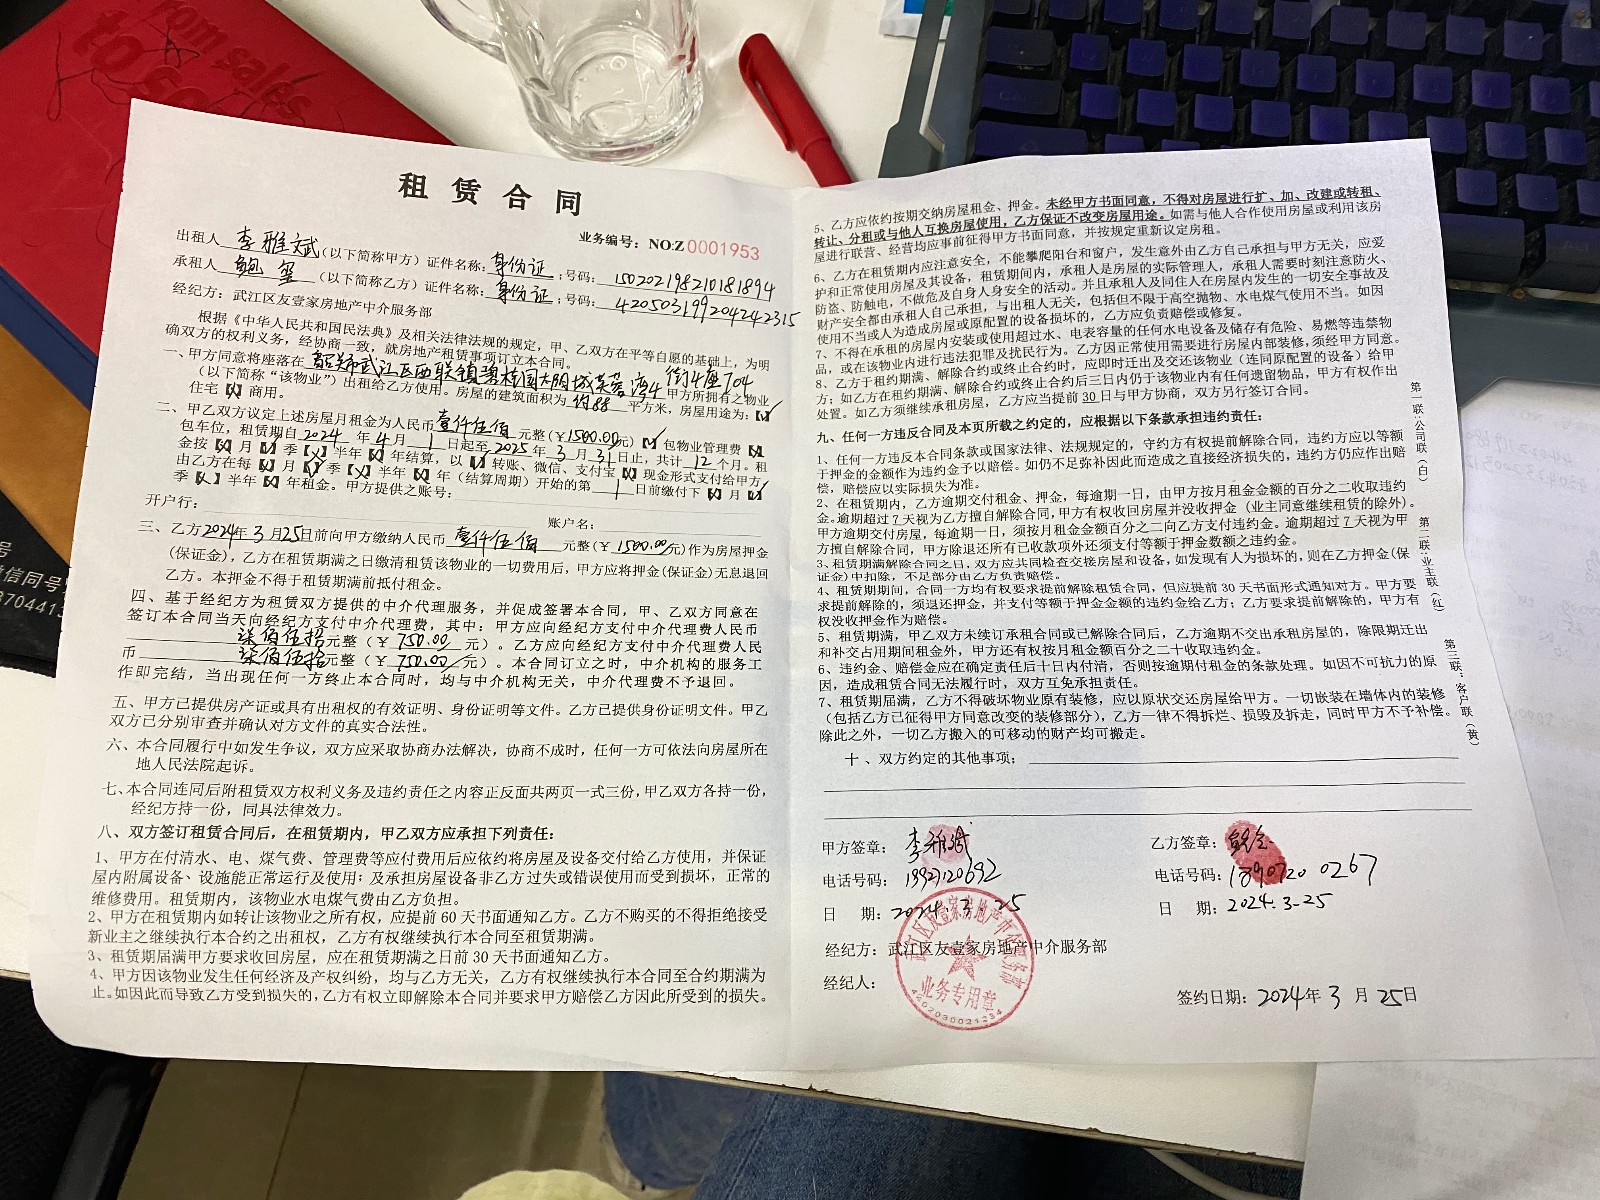 租赁合同
业务编号：NO:Z0001953
出租人 李雅斌（以下简称甲方）证件名称：身份证；号码：150202198210181894
承租人 鲍玺（以下简称乙方）证件名称：身份证；号码：420503199204242315
经纪方：武江区友壹家房地产中介服务部
根据《中华人民共和国民法典》及相关法律法规的规定，甲、乙双方在平等自愿的基础上，为明
确双方的权利义务，经协商一致，就房地产租赁事项订立本合同。
一、甲方同意将座落在 韶关市武江区西联镇碧桂园太阳城芙蓉湾4街4座704 甲方所拥有之物业
（以下简称“该物业”）出租给乙方使用。房屋的建筑面积为 约88 平方米，房屋用途为：【】
住宅【】商用。
二、甲乙双方议定上述房屋月租金为人民币 壹仟伍佰 元整（￥1500.00元）【】包物业管理费【】
包车位，租赁期自 2024 年 4 月 1 日起至 2025 年 3 月 31 日止，共计 12 个月。租
金按【】月【】季【】半年【】年结算，以【】转账、微信、支付宝【】现金形式支付给甲方，
由乙方在每【】月【】季【】半年【】年（结算周期）开始的第 1 日前缴付下【】月【】
季【】半年【】年租金。甲方提供之账号：
开户行： 账户名：
三、乙方2024年3月25日前向甲方缴纳人民币 壹仟伍佰 元整（￥1500.00元）作为房屋押金
（保证金），乙方在租赁期满之日缴清租赁该物业的一切费用后，甲方应将押金(保证金)无息退回
乙方。本押金不得于租赁期满前抵付租金。
四、基于经纪方为租赁双方提供的中介代理服务，并促成签署本合同，甲、乙双方同意在
签订本合同当天向经纪方支付中介代理费，其中：甲方应向经纪方支付中介代理费人民币
柒佰伍拾元整（￥750.00元）。乙方应向经纪方支付中介代理费人民
币 柒佰伍拾元整（￥750.00元）。本合同订立之时，中介机构的服务工
作即完结，当出现任何一方终止本合同时，均与中介机构无关，中介代理费不予退回。
五、甲方已提供房产证或具有出租权的有效证明、身份证明等文件。乙方已提供身份证明文件。甲乙
双方已分别审查并确认对方文件的真实合法性。
六、本合同履行中如发生争议，双方应采取协商办法解决，协商不成时，任何一方可依法向房屋所在
地人民法院起诉。
七、本合同连同后附租赁双方权利义务及违约责任之内容正反面共两页一式三份，甲乙双方各持一份，
经纪方持一份，同具法律效力。
八、双方签订租赁合同后，在租赁期内，甲乙双方应承担下列责任：
1、甲方在付清水、电、煤气费、管理费等应付费用后应依约将房屋及设备交付给乙方使用，并保证
屋内附属设备、设施能正常运行及使用；及承担房屋设备非乙方过失或错误使用而受到损坏，正常的
维修费用。租赁期内，该物业水电煤气费由乙方负担。
2、甲方在租赁期内如转让该物业之所有权，应提前60天书面通知乙方。乙方不购买的不得拒绝接受
新业主之继续执行本合约之出租权，乙方有权继续执行本合同至租赁期满。
3、租赁期届满甲方要求收回房屋，应在租赁期满之日前30天书面通知乙方。
4、甲方因该物业发生任何经济及产权纠纷，均与乙方无关，乙方有权继续执行本合同至合约期满为
止。如因此而导致乙方受到损失的，乙方有权立即解除本合同并要求甲方赔偿乙方因此所受到的损失。
5、乙方应依约按期交纳房屋租金、押金。未经甲方书面同意，不得对房屋进行扩、加、改建或转租、
转让、分租或与他人互换房屋使用，乙方保证不改变房屋用途。如需与他人合作使用房屋或利用该房
屋进行联营、经营均应事前征得甲方书面同意，并按规定重新议定房租。
6、乙方在租赁期内应注意安全，不能攀爬阳台和窗户，发生意外由乙方自己承担与甲方无关，应爱
护和正常使用房屋及其设备，租赁期间内，承租人是房屋的实际管理人，承租人需要时刻注意防火、
防盗、防触电，不做危及自身人身安全的活动。并且承租人及同住人在房屋内发生的一切安全事故及
财产安全都由承租人自己承担，与出租人无关，包括但不限于高空抛物、水电煤气使用不当。如因
使用不当或人为造成房屋或原配置的设备损坏的，乙方应负责赔偿或修复。
7、不得在承租的房屋内安装或使用超过水、电表容量的任何水电设备及储存有危险、易燃等违禁物
品，或在物业内进行违法犯罪及扰民行为。乙方因正常使用需要进行房屋内部装修，须经甲方同意。
8、乙方于租约期满、解除合约或终止合约时，应即时迁出及交还该物业（连同原配置的设备）给甲
方；如乙方在租约期满、解除合约或终止合约后三日内仍于该物业内有任何遗留物品，甲方有权作出
处置。如乙方须继续承租房屋，乙方应当提前30日与甲方协商，双方另行签订合同。
九、任何一方违反合同及本页所载之约定的，应根据以下条款承担违约责任：
1、任何一方违反本合同条款或国家法律、法规规定的，守约方有权提前解除合同，违约方应以等额
于押金的金额作为违约金予以赔偿。如仍不足弥补因此而造成之直接经济损失的，违约方仍应作出赔
偿，赔偿应以实际损失为准。
2、在租赁期内，乙方逾期交付租金、押金，每逾期一日，由甲方按月租金金额的百分之二收取违约
金。逾期超过7天视为乙方擅自解除合同，甲方有权收回房屋并没收押金（业主同意继续租赁的除外）。
甲方逾期交付房屋，每逾期一日，须按月租金金额百分之二向乙方支付违约金。逾期超过7天视为甲
方擅自解除合同，甲方除退还所有已收款项外还须支付等额于押金数额之违约金。
3、租赁期满解除合同之日，双方应共同检查交接房屋和设备，如发现有人为损坏的，则在乙方押金(保
证金)中扣除，不足部分由乙方负责赔偿。
4、租赁期期间，合同一方均有权要求提前解除租赁合同，但应提前30天书面形式通知对方。甲方要
求提前解除的，须退还押金，并支付等额于押金金额的违约金给乙方；乙方要求提前解除的，甲方有
权没收押金作为赔偿。
5、租赁期满，甲乙双方未续订承租合同或已解除合同后，乙方逾期不交出承租房屋的，除限期迁出
和补交占用期间租金外，甲方还有权按月租金额百分之二十收取违约金。
6、违约金、赔偿金应在确定责任后十日内付清，否则按逾期付租金的条款处理。如因不可抗力的原
因，造成租赁合同无法履行时，双方互免承担责任。
7、租赁期届满，乙方不得破坏物业原有装修，应以原状交还房屋给甲方。一切嵌装在墙体内的装修
（包括乙方已征得甲方同意改变的装修部分），乙方一律不得拆烂、损毁及拆走，同时甲方不予补偿。
除此之外，一切乙方搬入的可移动的财产均可搬走。
十、双方约定的其他事项：
甲方签章：李雅斌
电话号码：19927120692
日 期：2024.3.25
乙方签章：鲍玺
电话号码：18907200267
日 期：2024.3-25
经纪方：武江区友壹家房地产中介服务部
经纪人：
签约日期：2024年3月25日
武江区友壹家房地产中介服务部
业务专用章
4402030021234
第一联：公司联（白）
第二联：业主联（红）
第三联：客户联（黄）
from sales